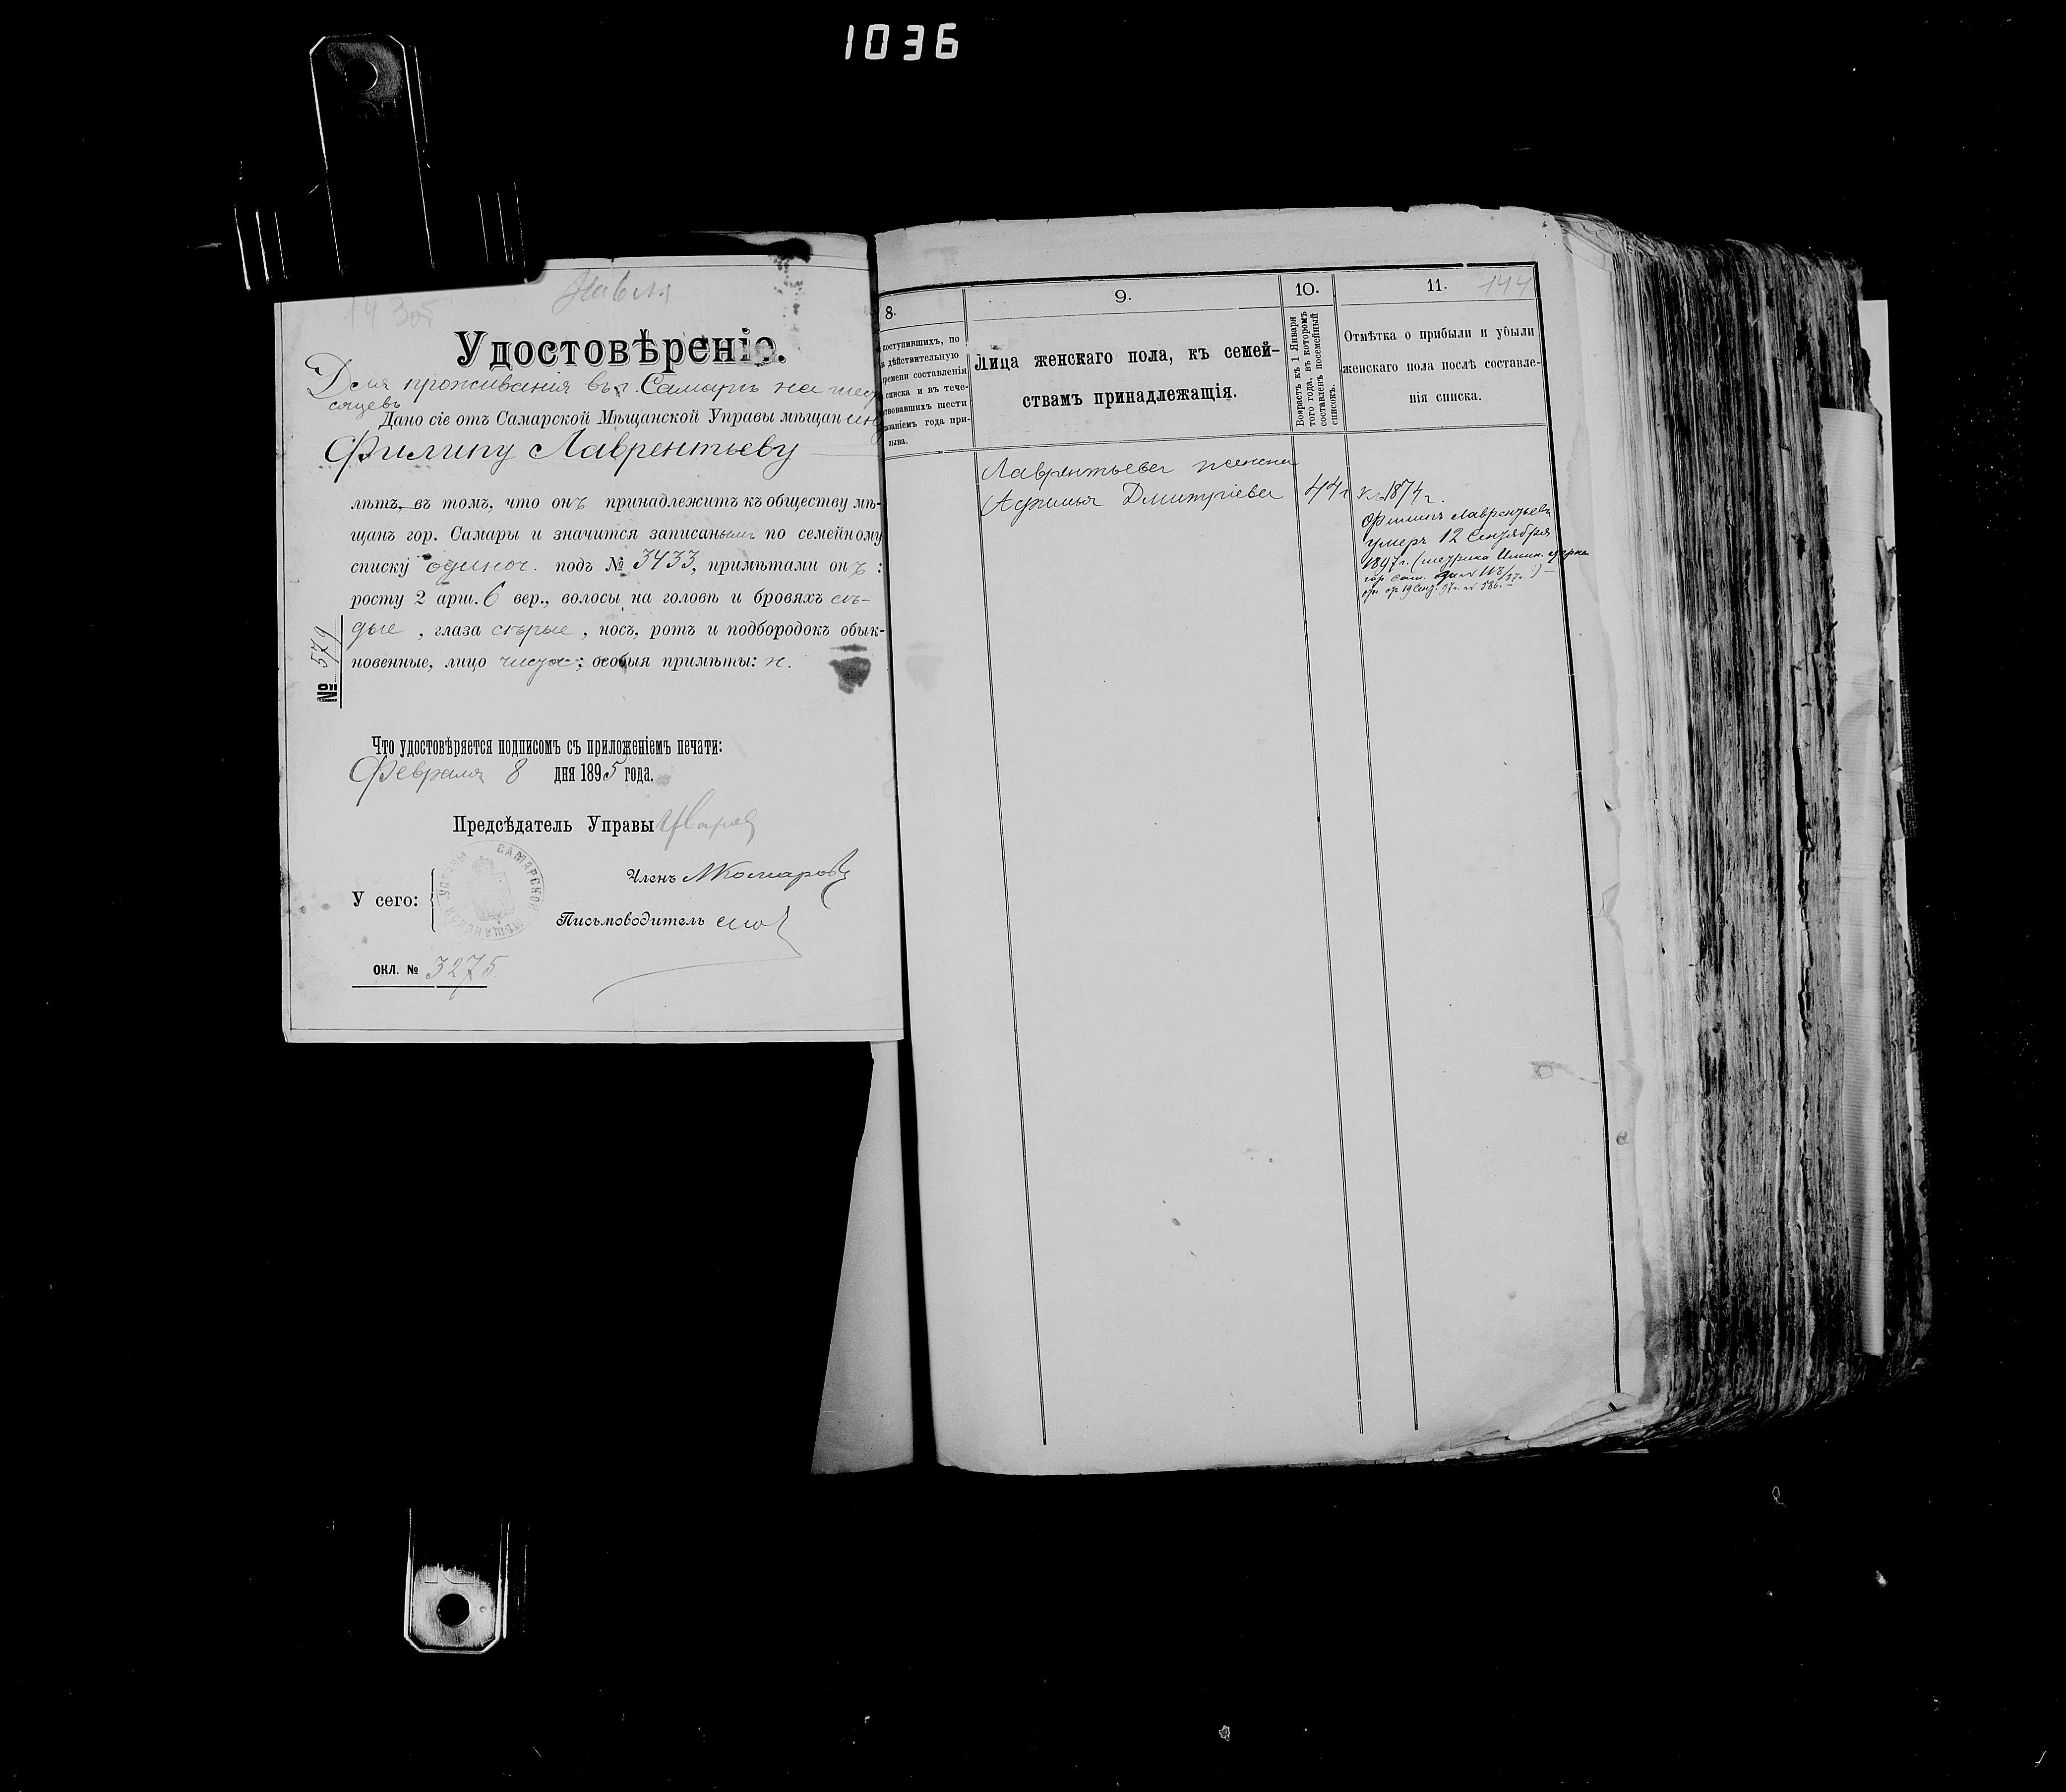 1036
Удостовѣреніе.
Для проживанія въ г. Самарѣ на шес
сяцевъ
Дано сіе отъ Самарской Мѣщанской Управы мѣщанину
Филипу Лаврентьеву
лѣтъ, въ томъ, что онъ принадлежитъ къ обществу мѣ-
щанъ гор. Самары и значится записаннымъ по семейному
списку одиноч. подъ № 3433, примѣтами онъ:
росту 2 арш. 6 вер., волосы на головѣ и бровяхъ сѣ-
дые, глаза сѣрые, носъ, ротъ и подбородокъ обык-
новенные, лицо чисто; особыя примѣты: н.
№ 579
Что удостовѣряется подписомъ съ приложеніемъ печати:
Февраля 8 дня 1895 года.
Предсѣдатель Управы
Членъ МКомаровъ
У сего:
САМАРСКОЙ МѢЩАНСКОЙ УПРАВЫ
Письмоводитель
ОКЛ. № 3275.
8.
поступившихъ, по
дѣйствительную
времени составленія
списка и въ тече-
ствовавшихъ шести
казаніемъ года при-
зыва.
9.
Лица женскаго пола, къ семей-
ствамъ принадлежащія.
10.
Возрастъ къ 1 Января
того года, въ которомъ
составленъ посемейный
списокъ.
11. 144
Отмѣтка о прибыли и убыли
женскаго пола послѣ составле-
нія списка.
Лаврентьева жена
Афимья Дмитріева 44 г
къ 1874 г.
Филипъ Лаврентьевъ
умеръ 12 Сентября
1897 г. (метрика